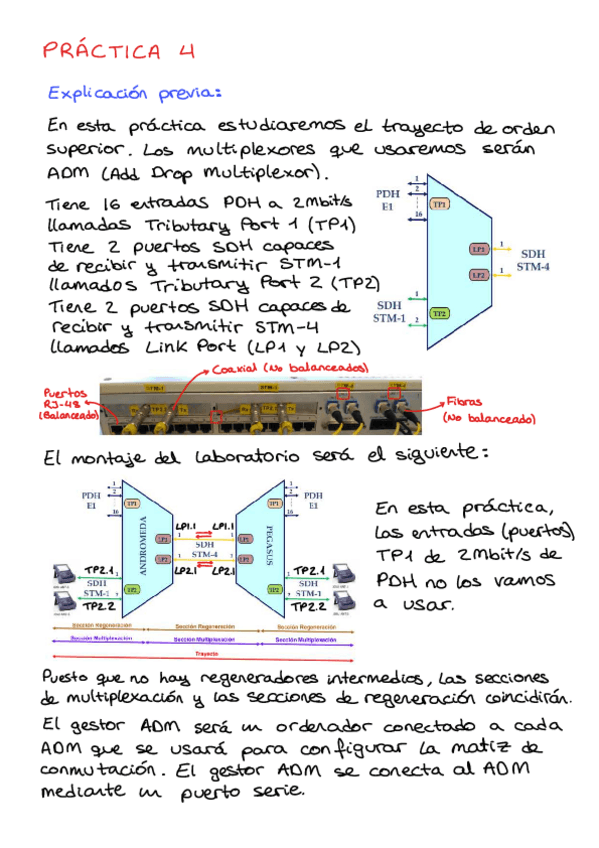 PRÁCTICA 4
Explicación previa:
En esta práctica estudiaremos el trayecto de orden
superior. Los multiplexores que usaremos serán
ADM (Add Drop Multiplexor).
Tiene 16 entradas PDH a 2Mbit/s
llamadas Tributary Port 1 (TP1)
Tiene 2 puertos SDH capaces
de recibir y transmitir STM-1
llamados Tributary Port 2 (TP2)
Tiene 2 puertos SDH capaces de
recibir y transmitir STM-4
llamados Link Port (LP1 y LP2)
PDH
E1
1
2
16
TP1
LP1
1
LP2
1
SDH
STM-4
SDH
STM-1
1
2
TP2
Coaxial (No balanceados)
Puertos
RJ-48
(Balanceado)
Fibras
(No balanceado)
El montaje del laboratorio será el siguiente:
PDH
E1
1
2
16
TP1
ANDROMEDA
LP1
LP2
TP2
LP1.1
LP1.1
SDH
STM-4
LP2.1
LP2.1
PEGASUS
TP1
LP1
LP2
TP2
1
2
16
PDH
E1
TP2.1
SDH
STM-1
TP2.2
TP2.1
SDH
STM-1
TP2.2
Sección Regeneración
Sección Regeneración
Sección Regeneración
Sección Multiplexación
Sección Multiplexación
Sección Multiplexación
Trayecto
En esta práctica,
las entradas (puertos)
TP1 de 2Mbit/s de
PDH no los vamos
a usar.
Puesto que no hay regeneradores intermedios, las secciones
de multiplexación y las secciones de regeneración coincidirán.
El gestor ADM será un ordenador conectado a cada
ADM que se usará para configurar la matiz de
conmutación. El gestor ADM se conecta al ADM
mediante un puerto serie.